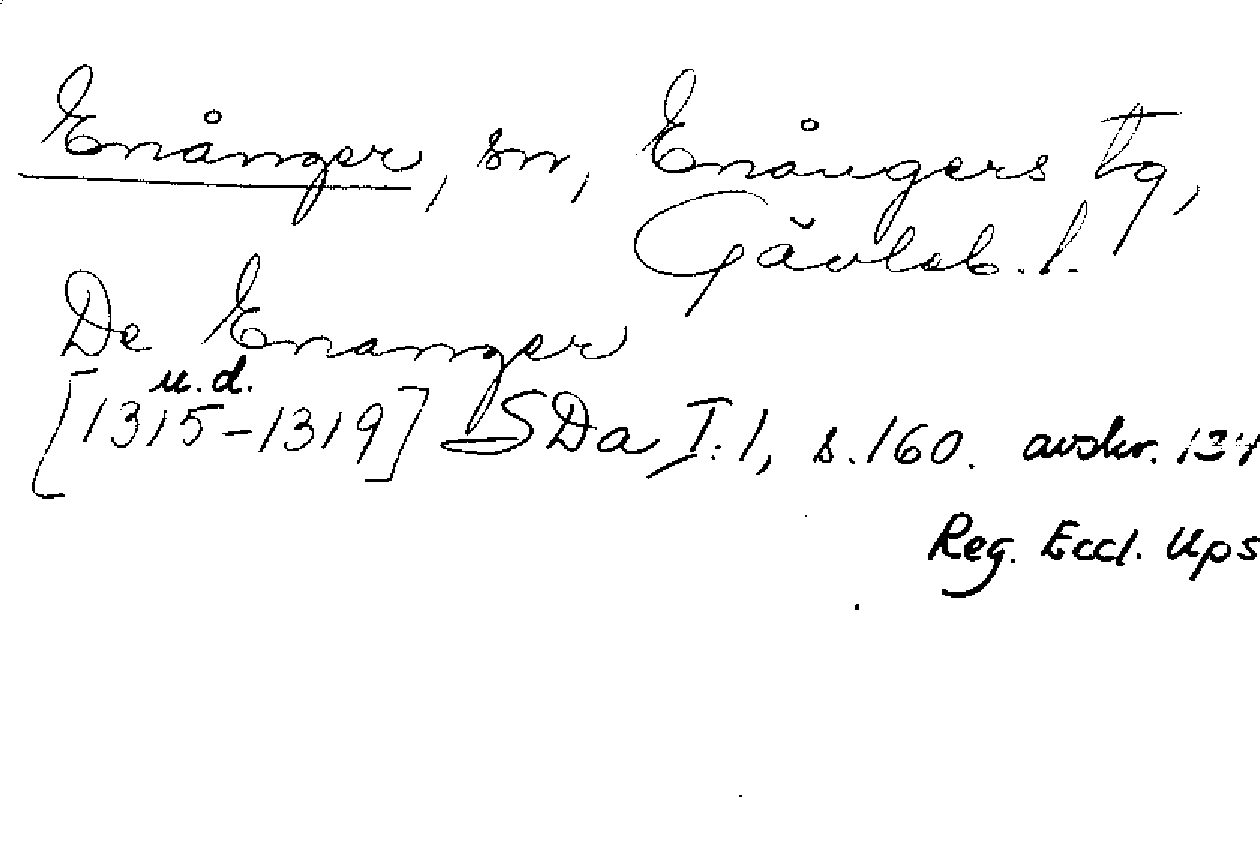 Enånger, sn, Enångers tg,
Gävleb. l.
De Enanger
u.d.
[1315-1319] SDa I:1, s.160. avskr. 134
Reg. Eccl. Ups